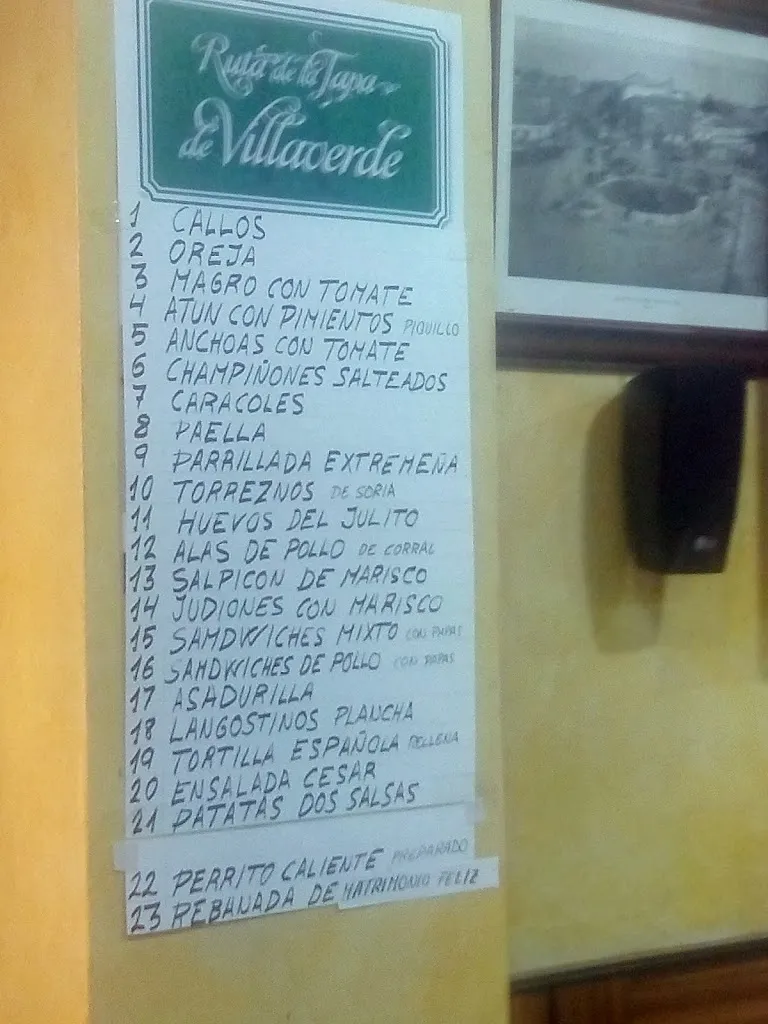 Ruta de la Tapa
de Villaverde
1 CALLOS
2 OREJA
3 MAGRO CON TOMATE
4 ATUN CON PIMIENTOS PIQUILLO
5 ANCHOAS CON TOMATE
6 CHAMPIÑONES SALTEADOS
7 CARACOLES
8 PAELLA
9 PARRILLADA EXTREMEÑA
10 TORREZNOS DE SORIA
11 HUEVOS DEL JULITO
12 ALAS DE POLLO DE CORRAL
13 SALPICON DE MARISCO
14 JUDIONES CON MARISCO
15 SAMDWICHES MIXTO CON PAPAS
16 SAMDWICHES DE POLLO CON PAPAS
17 ASADURILLA
18 LANGOSTINOS PLANCHA
19 TORTILLA ESPAÑOLA RELLENA
20 ENSALADA CESAR
21 PATATAS DOS SALSAS
22 PERRITO CALIENTE PREPARADO
23 REBANADA DE MATRIMONIO FELIZ